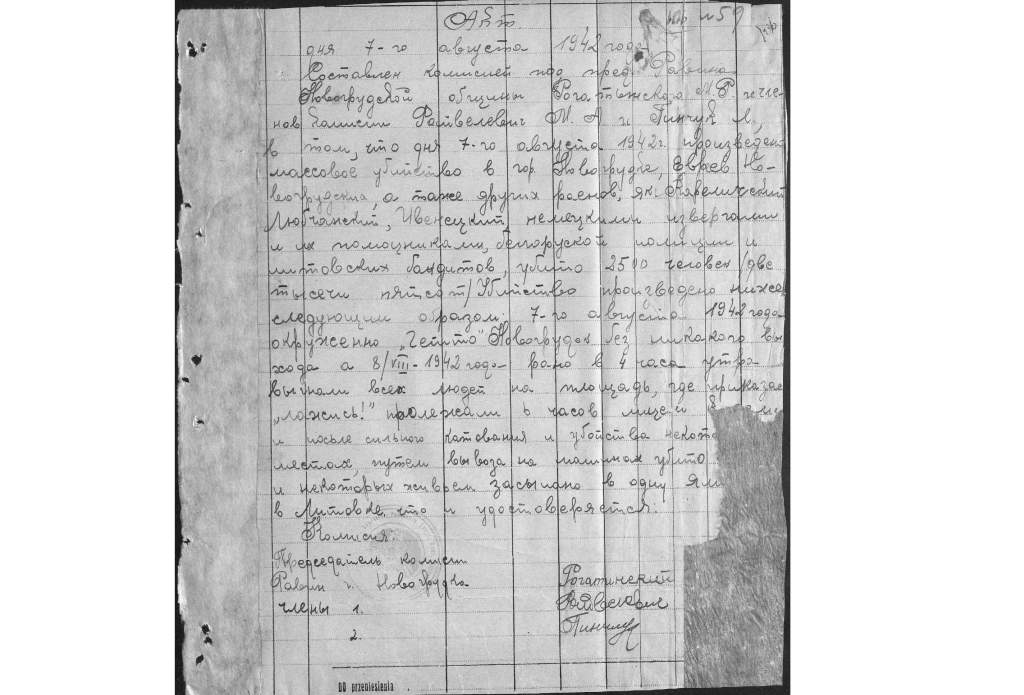 Акт.
№ 59
дня 7-го августа 1942 года
Составлен комисией под пред. Равина
Новогрудской общины Рогатынского М. Р. и чле-
нов Комисии М. А и Пинчук Л,
в том, что дня 7-го августа 1942 г. произведен
массовое убийство в гор. Новогрудке, Евреев Но-
вогрудских, а также других раенов, як:
Любчанский, Ивенецкий, немецкими извергами
и их помощниками, белоруской полиции и
литовских бандитов, убито 2500 человек /две
тысячи пятсот/ Убийство произведено ниже
следующим образом: 7-го августа 1942 года
окруженно „Гетто" Новогрудок без никакого вы
хода а 8/VIII-1942 года рано в 4 часа утра
выгнали всех людей на площадь, где приказа
„ложись!" пролежали 6 часов лицем
и после сильного катования и убойства некот
местах, путем вывоза на машинах убито
и некоторых живьем засыпано в одну ям
в Литовке, что и удостоверяется:
Комисия:
Председатель комисии
Равин г. Новогрудка Рогатинский
члены 1.
2.
DO przeniesienia